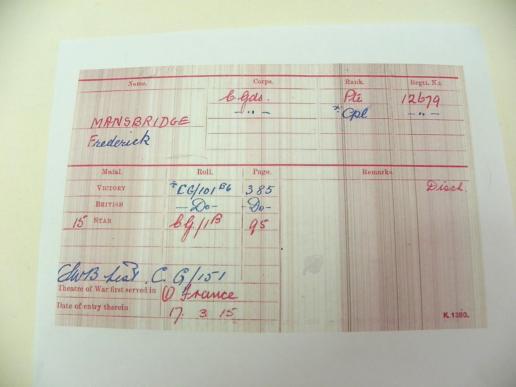 Name. Corps. Rank. Regtl. No.
C. Gds. Pte 12679
MANSBRIDGE -"- *Cpl -"-
Frederick
Medal. Roll. Page. Remarks.
VICTORY *CG/101 B6 385 Disch.
BRITISH -Do- -Do-
15 STAR C.G/1B 95
SWB List C.G/151
Theatre of War first served in (1) France
Date of entry therein 17. 3. 15
K. 1380.